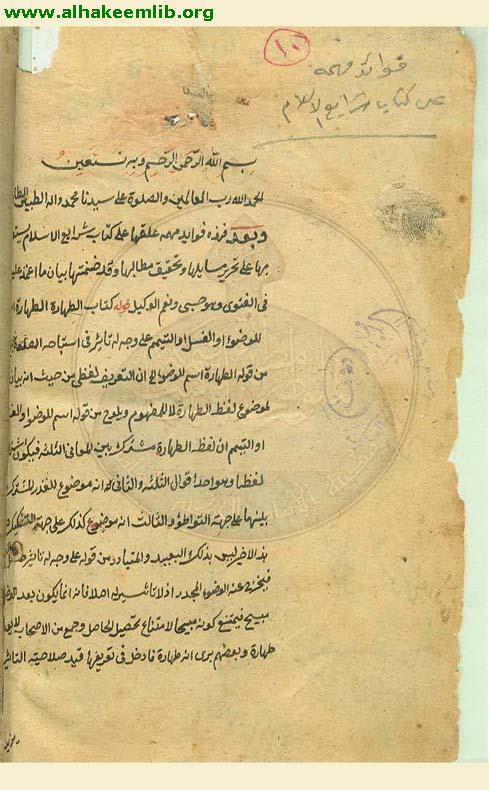 www.alhakeemlib.org
١٠
فوائد مهمه
على كتاب شرايع الاسلام
بسم الله الرحمن الرحيم وبه نستعين
الحمد لله رب العالمين والصلوة على سيدنا محمد واله الطيبين
وبعد فهذه فوايد مهمه علقتها على كتاب شرايع الاسلام
بها على تحرير مسايلها وتحقيق مطالبها وقد ضمنتها بيان ما اعتمد عليه
فى الفتوى وهو حسبى ونعم الوكيل قوله كتاب الطهارة الطهارة
للوضوء او الغسل او التيمم على وجه له تاثير فى استباحه الصلوة
من قوله الطهارة اسم للوضوء الى ان التعريف لفظى من حيث انه بيان
لموضوع لفظ الطهارة لا للمفهوم ويلوح من قوله اسم للوضوء او الغسل
او التيمم ان لفظ الطهارة مشترك بين المعانى الثلثه فيكون
لفظيا وهو احد اقوال الثلثه والثانى انه موضوع للقدر المشترك
بينها على جهة التواطؤ والثالث انه موضوع كذلك على جهة التشكيك
هذا الاخير ليس بذلك البعيد والمتبادر من قوله على وجه له تاثير
فيخرج عنه الوضوء المجدد اذ لا تاثير له اصلا فانه انما يكون بعد
مبيح فيمتنع كونه مبيحا لامتناع تحصيل الحاصل وجمع من الاصحاب لا
طهارة وبعضهم يرى انه طهارة فادخل فى تعريفها قيد صلاحيته التاثير